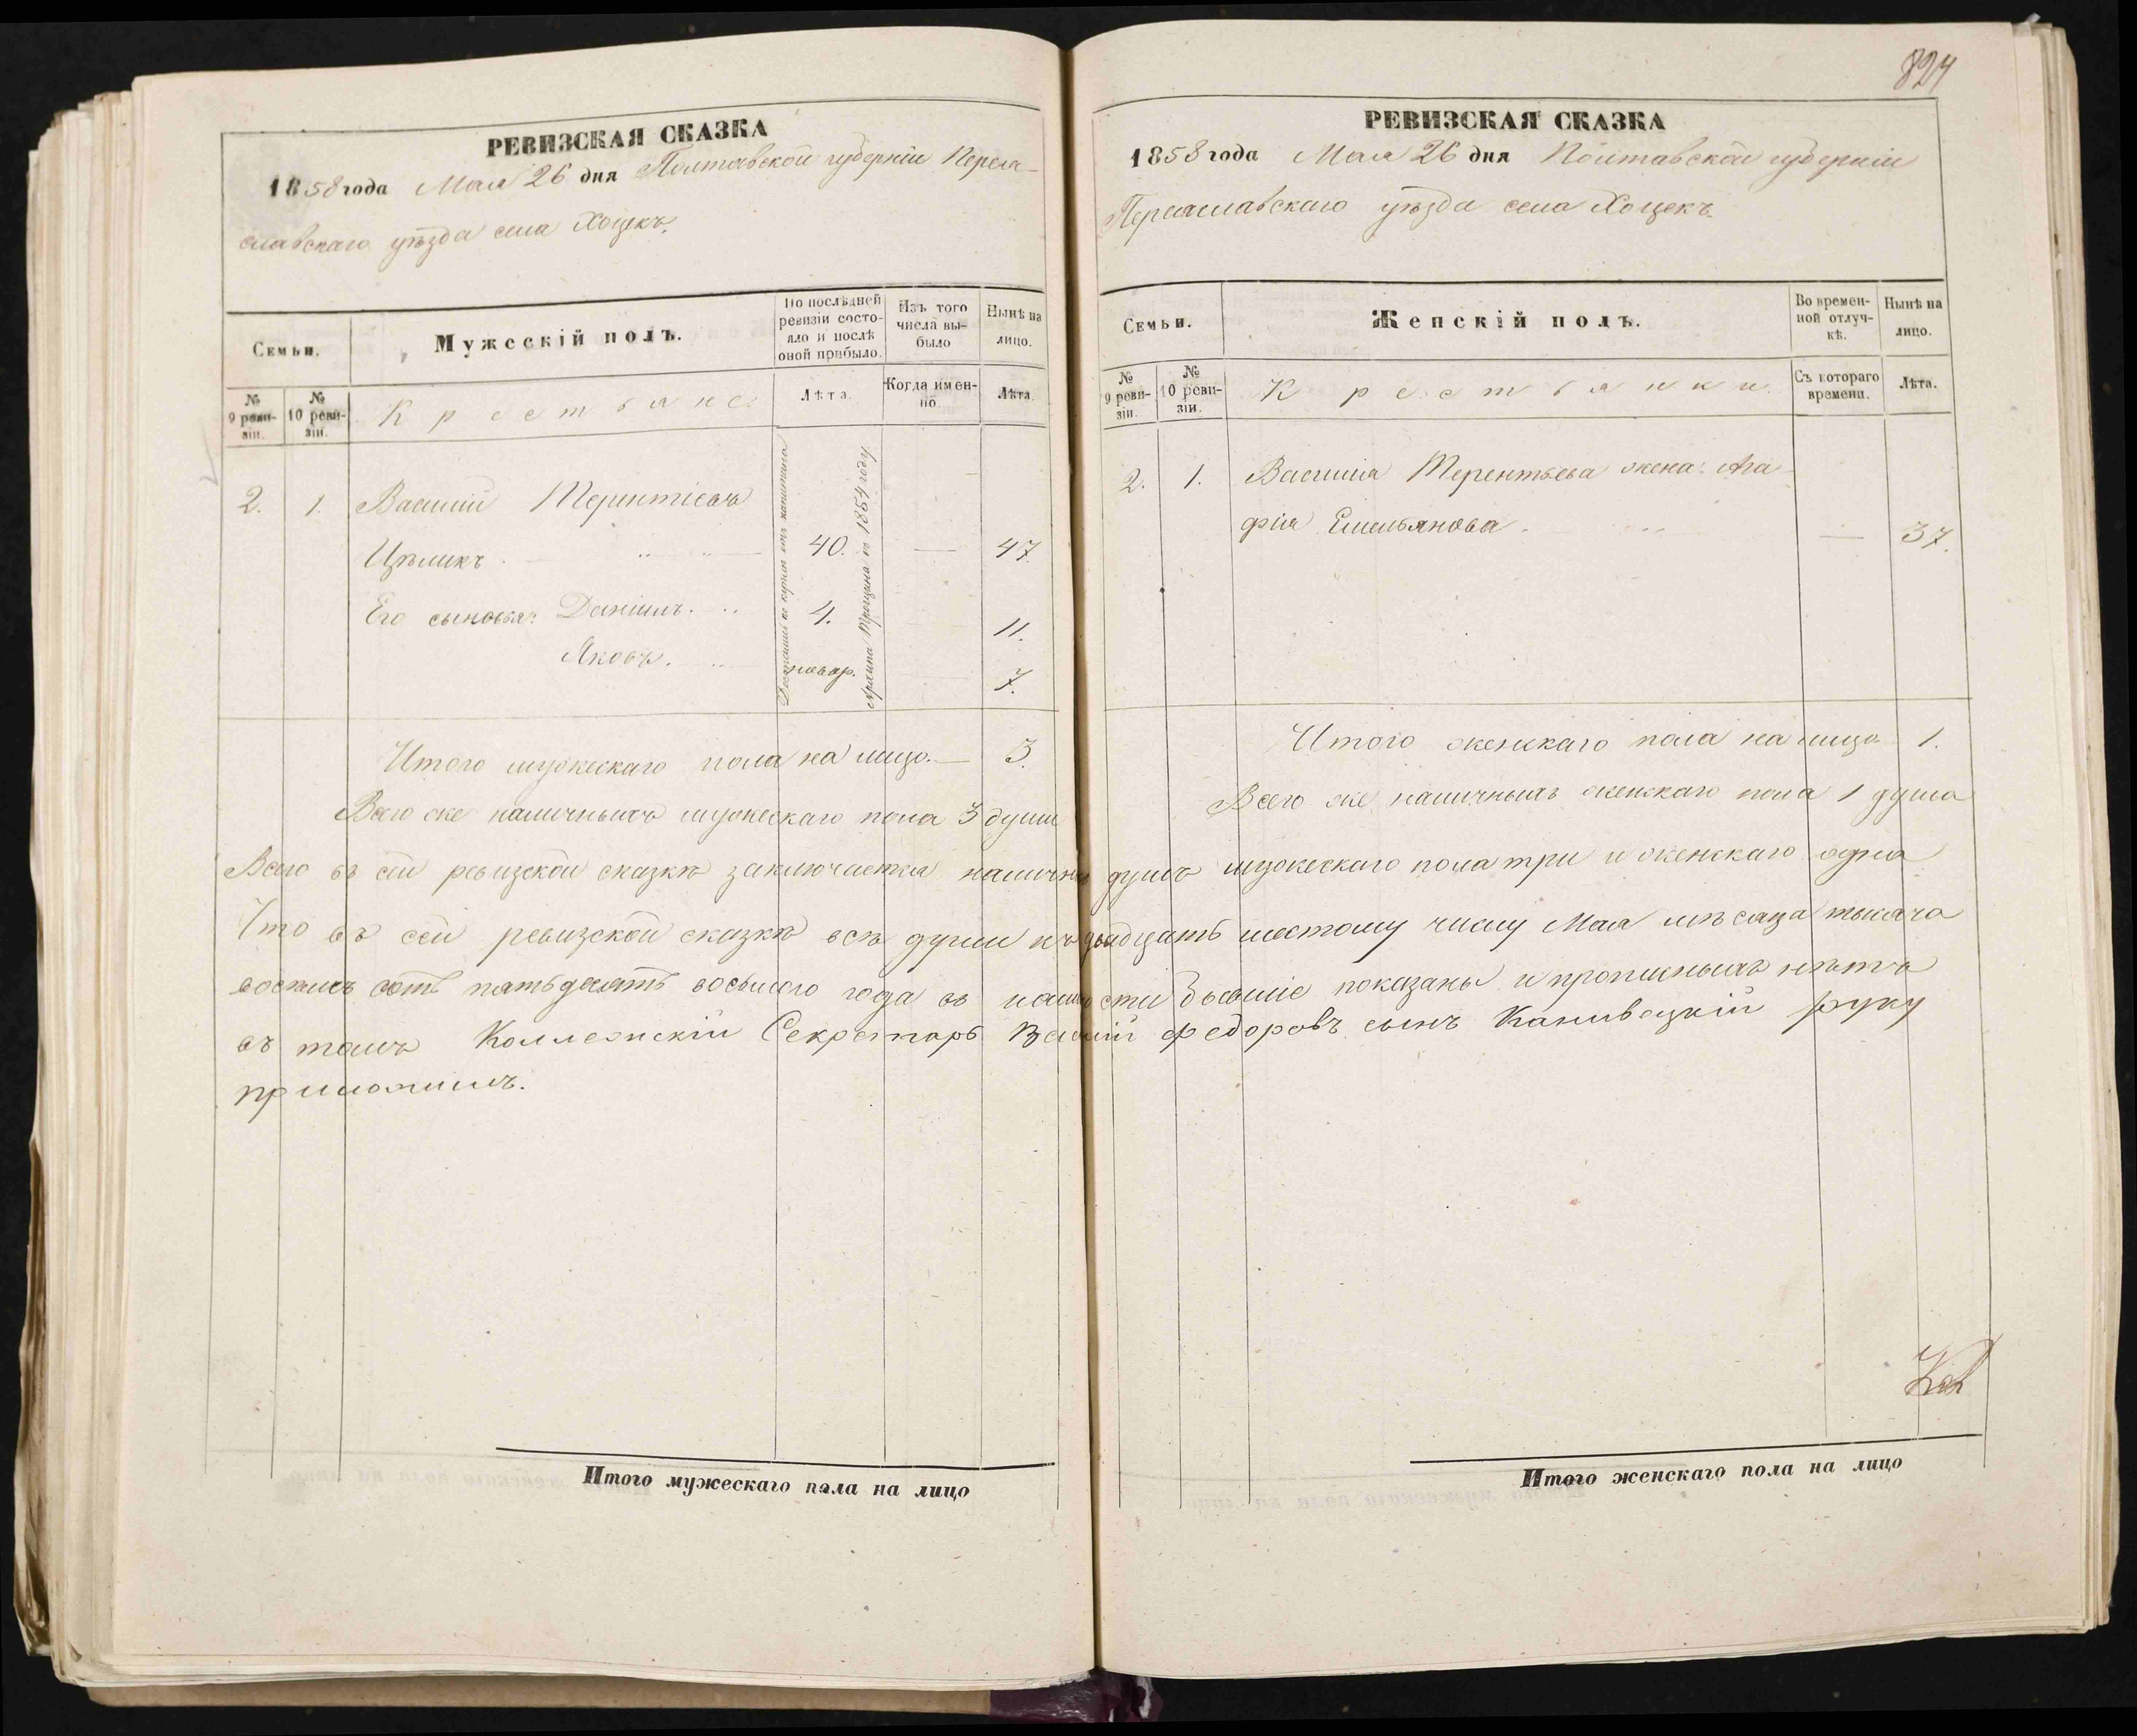 РЕВИЗСКАЯ СКАЗКА
1858 года Мая 26 дня Полтавской губерніи Переяславскаго
уѣзда села Хоцекъ.
Семьи.
Мужескій полъ.
По послѣдней ревизіи состояло и послѣ оной прибыло.
Изъ того числа выбыло
Нынѣ на лицо.
№ 9 ревизіи.
№ 10 ревизіи.
Крестьяне.
Лѣта.
Когда именно
Лѣта
2. 1. Василій Терентіевъ
Цѣликъ 40. — 47.
Его сыновья: Даніилъ. 4. 11.
Яковъ. новор. 7.
Достались по купчей отъ капитана
Архипа Трощина въ 1854 году
Итого мужескаго пола на лицо. — 3.
Всего же наличныхъ мужескаго пола 3 души
824
РЕВИЗСКАЯ СКАЗКА
1858 года Мая 26 дня Полтавской губерніи
Переяславскаго уѣзда села Хоцекъ.
Семьи.
Женскій полъ.
Во временной отлучкѣ.
Нынѣ на лицо.
№ 9 ревизіи.
№ 10 ревизіи.
Крестьянки
Съ котораго времени.
Лѣта.
2. 1. Василія Терентьева жена Ага
фія Емельянова — 37.
Итого женскаго пола на лицо 1.
Всего же наличныхъ женскаго пола 1 душа
Всего въ сей ревизской сказкѣ заключается наличныхъ душъ мужескаго пола три и женскаго одна
Что въ сей ревизской сказкѣ всѣ души къ двадцать шестому числу Мая мѣсяца тысяча
восемь сотъ пятьдесятъ восьмого года въ наличности бывшіе показаны и прописныхъ нѣтъ
въ томъ Коллежскій Секретарь Василій Федоровъ сынъ Каневецкій руку
приложилъ.
Итого мужескаго пола на лицо
Итого женскаго пола на лицо